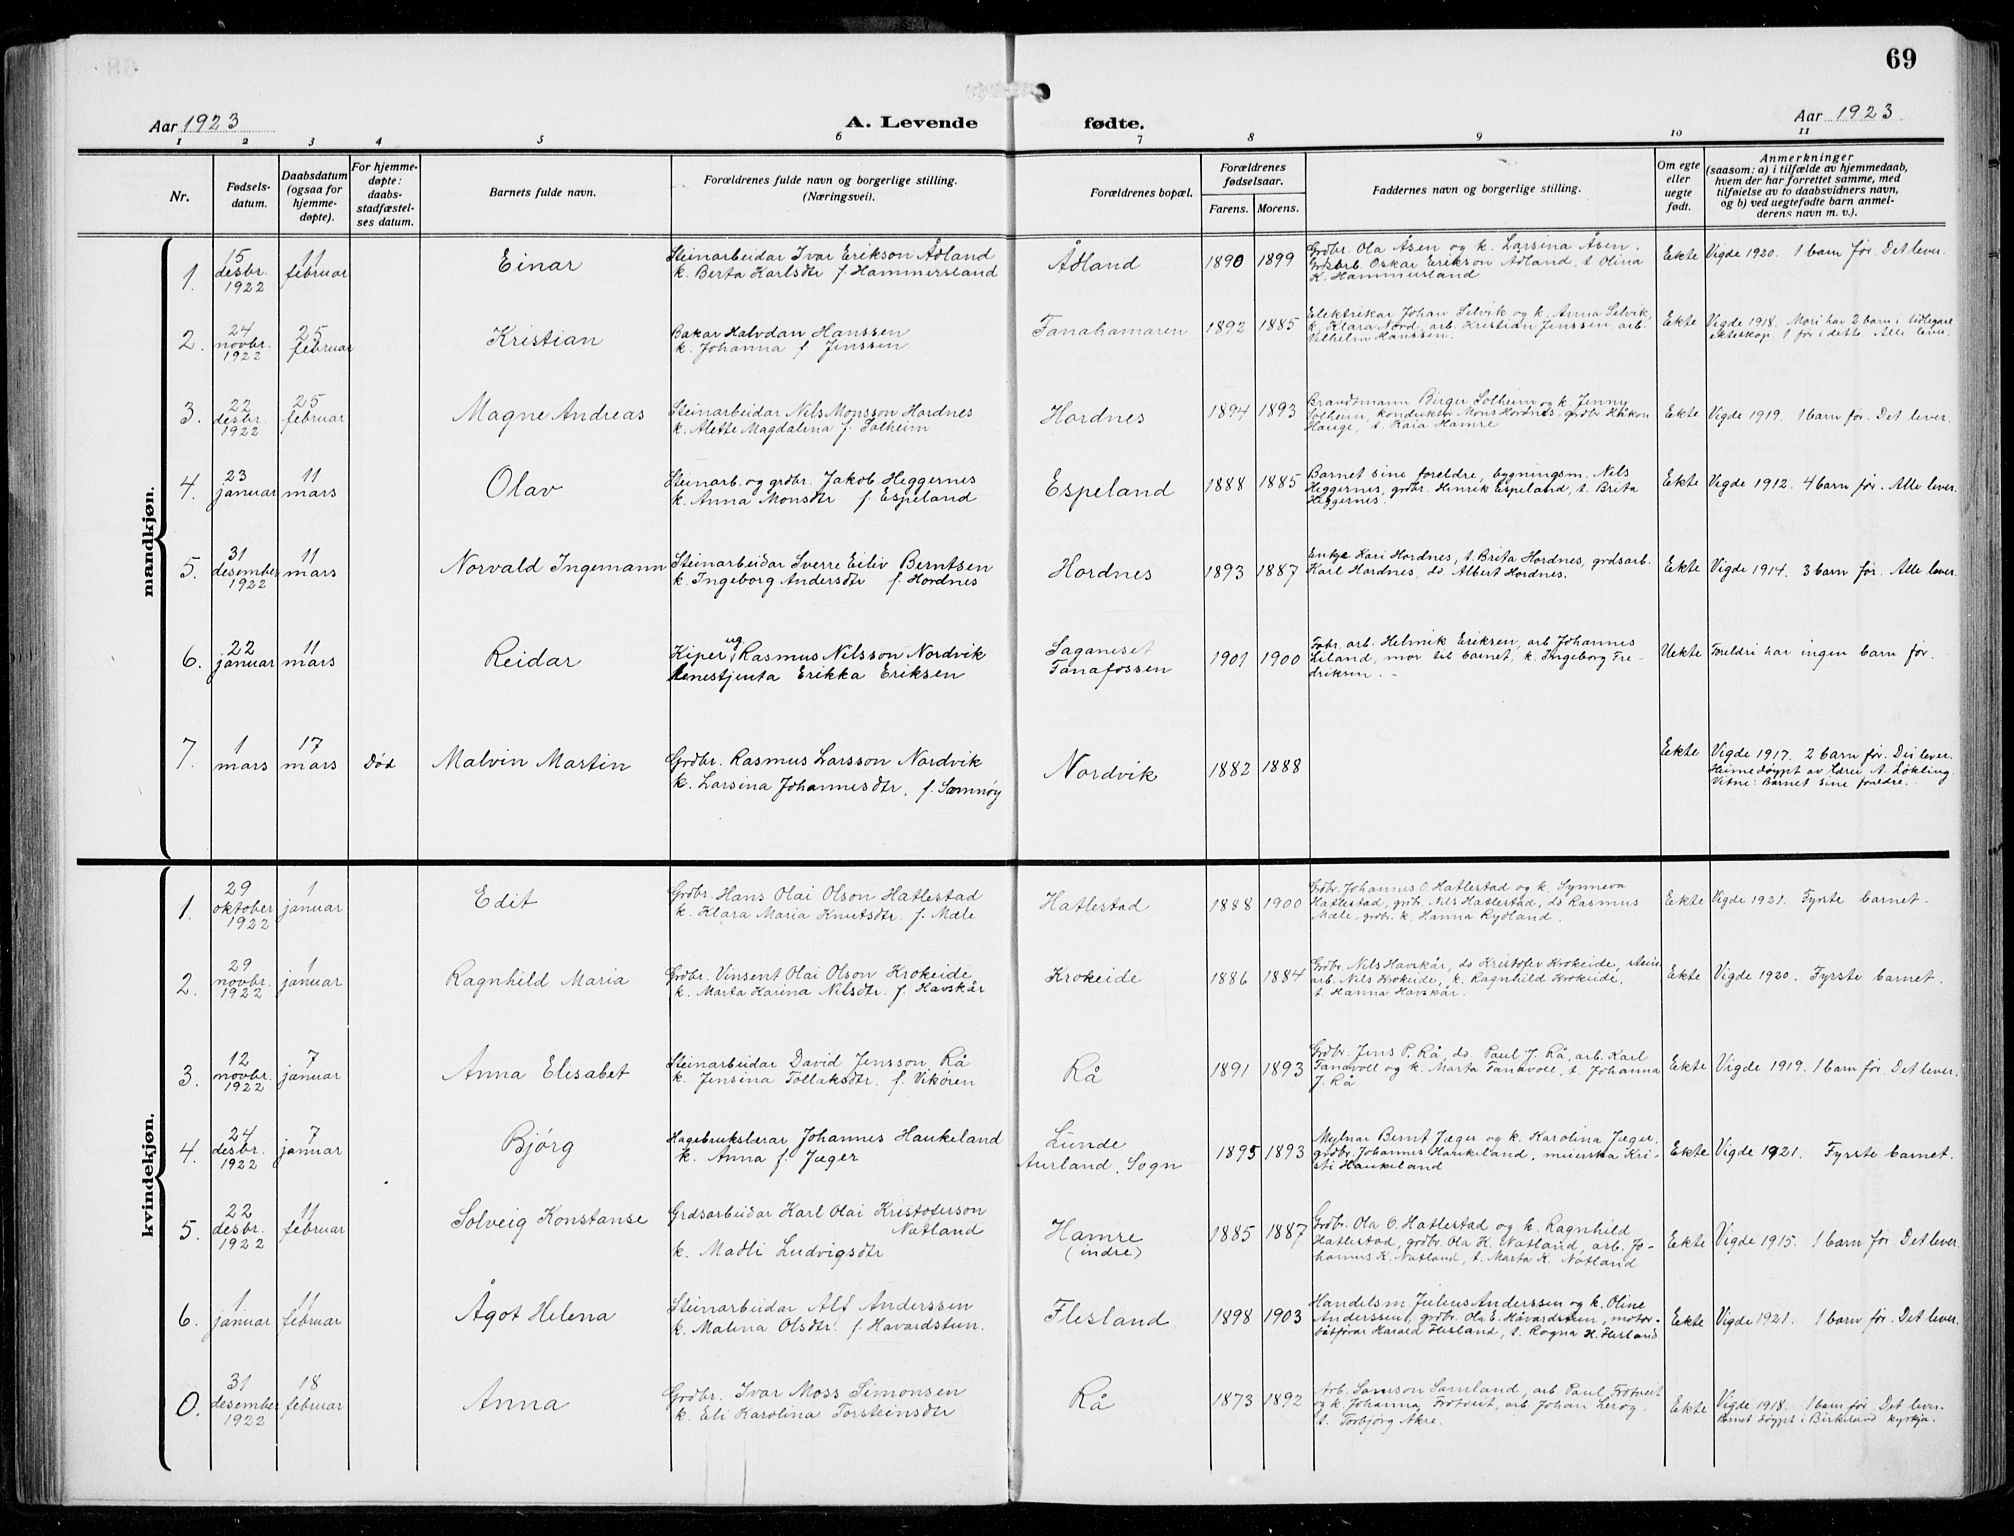 69
Aar 1923
A. Levende fødte.
Aar 1923
1 2 3 4 5 6 7 8 9 10 11
Nr.
Fødsels-
datum.
Daabsdatum
(ogsaa for
hjemme-
døpte).
For hjemme-
døpte:
daabs-
stadfæstel-
ses datum.
Barnets fulde navn.
Forældrenes fulde navn og borgerlige stilling.
(Næringsvei).
Forældrenes bopæl.
Forældrenes
fødselsaar.
Farens. Morens.
Faddernes navn og borgerlige stilling.
Om egte
eller
uegte
født.
Anmerkninger
(saasom: a) i tilfælde av hjemmedaab,
hvem der har forrettet samme, med
tilføielse av to daabsvidners navn,
og b) ved uegtefødte barn anmel-
derens navn m. v.).
mandkjøn.
1.
15
desbr.
1922
11
februar
Einar
Steinarbeidar Ivar Erikson Ådland
k. Berta Karlsdtr f. Hammersland
Ådland
1890 1899
Grdbr. Ola Åsen og k. Larsina Åsen.
Grdsarb. Oskar Erikson Ådland, t. Olina
K. Hammersland
Ekte
Vigde 1920. 1 barn før. Det lever.
2.
24
novbr.
1922
25
februar
Kristian
Bakar Halvdan Hanssen
k. Johanna f. Jenssen
Fanahamaren
1892 1885
Elektrikar Johan Selvik og k. Anna Selvik,
k. Klara Nord, arb. Kristian Jenssen, arb.
Vilhelm Hanssen.
Ekte
Vigde 1918. Mori har 2 barn i tidlegare
ekteskap. 1 før i dette. Alle lever.
3.
22
desbr.
1922
25
februar
Magne Andreas
Steinarbeidar Nils Monsson Hordnes
k. Alette Magdalena f. Solheim
Hordnes
1894 1893
Brandsmann Birger Solheim og k. Jenny
Solheim, konduktør Mons Hordnes, grdbr. Håkon
Hauge, t. Raia Hamre
Ekte
Vigde 1919. 1 barn før. Det lever.
4.
23
januar
11
mars
Olav
Steinarb. og grdbr. Jakob Heggernes
k. Anna Monsdtr f. Espeland
Espeland
1888 1885
Barnet sine foreldre, bygningsm. Nils
Heggernes, grdbr. Henrik Espeland, t. Brita
Heggernes.
Ekte
Vigde 1912. 4 barn før. Alle lever.
5.
31
desember
1922
11
mars
Norvald Ingemann
Steinarbeidar Sverre Eiliv Berntsen
k. Ingeborg Andersdtr f. Hordnes
Hordnes
1893 1887
Enkje Kari Hordnes, t. Brita Hordnes, grdsarb.
Karl Hordnes, do. Albert Hordnes.
Ekte
Vigde 1914. 3 barn før. Alle lever.
6.
22
januar
11
mars
Reidar
Kiper ug. Rasmus Nilsson Nordvik
tenestjenta Erikka Eriksen
Saganeset
Fanafossen
1901 1900
Fabr. arb. Helmik Eriksen, arb. Johannes
Leland, mor til barnet, k. Ingeborg Fre-
driksen.
Uekte
Foreldri har ingen barn før.
7.
1
mars
17
mars
Død
Malvin Martin
Grdbr. Rasmus Larsson Nordvik
k. Larsina Johannesdtr. f. Samnøy
Nordvik
1882 1888
Eekte
Vigde 1917. 2 barn før. Dei lever.
Heimedøypt av lærar A. Løkling.
Vitne: Barnet sine foreldre.
kvindekjøn.
1.
29
oktober
1922
1
januar
Edit
Grdbr. Hans Olai Olson Hatlestad
k. Klara Maria Knutsdtr. f. Mæle
Hatlestad
1888 1900
Grdbr. Johannes O. Hatlestad og k. Synneva
Hatlestad, grdbr. Nils Hatlestad, do Rasmus
Mæle, grdbr. k. Hanna Rydland.
Ekte
Vigde 1921. Fyrste barnet.
2.
29
novbr.
1922
1
januar
Ragnhild Maria
Grdbr. Vinsent Olai Olson Krokeide
k. Marta Karina Nilsdtr. f. Havskår
Krokeide
1886 1884
Grdbr. Nils Havskår, do Kristofer Krokeide, stein-
arb. Nils Krokeide, k. Ragnhild Krokeide,
t. Hanna Havskår.
Ekte
Vigde 1920. Fyrste barnet.
3.
12
novbr.
1922
7
januar
Anna Elisabet
Steinarbeidar David Jensson Rå
k. Jensina Tollaksdtr. f. Vikøren
Rå
1891 1893
Grdbr. Jens P. Rå, do. Paul J. Rå, arb. Karl
Fanavoll og k. Marta Fanavoll, t. Johanna
J. Rå
Ekte
Vigde 1919. 1 barn før. Det lever.
4.
24
desbr.
1922
7
januar
Bjørg
Hagebrukslærar Johannes Haukeland
k. Anna f. Jæger
Lunde
Aurland, Sogn
1895 1893
Mylnar Bernt Jæger og k. Karolina Jæger,
grdbr. Johannes Haukeland, meierska Kri-
sti Haukeland
Ekte
Vigde 1921. Fyrste barnet.
5.
22
desbr.
1922
11
februar
Solveig Konstanse
Grdsarbeidar Karl Olai Kristoferson
Natland
k. Madli Ludvigsdtr
Hamre
(indre)
1885 1887
Grdbr. Ola O. Hatlestad og k. Ragnhild
Hatlestad, grdbr. Ola K. Natland, arb. Jo-
hannes K. Natland, t. Marta K. Natland
Ekte
Vigde 1915. 1 barn før. Det lever.
6.
1
januar
11
februar
Ågot Helena
Steinarbeidar Alf Anderssen
k. Malena Olsdtr. f. Håvardstun.
Flesland
1898 1903
Handelsm. Julius Anderssen og k. Oline
Anderssen, grdbr. Ola E. Håvardstun, motor-
båtførar Harald Flesland, t. Rogna H. Flesland
Ekte
Vigde 1921. 1 barn før. Det lever.
0.
31
desember
1922
18
februar
Anna
Grdbr. Ivar Moss Simonsen
k. Eli Karolina Torsteinsdtr
Rå
1873 1892
Arb. Samson Samland, arb. Paul Frotveit
og k. Johanna Frotveit, arb. Johan Lerøy,
t. Torbjørg Akre.
Ekte
Vigde 1918. 1 barn før. Det lever.
Barnet døypt i Birkeland kyrkja.